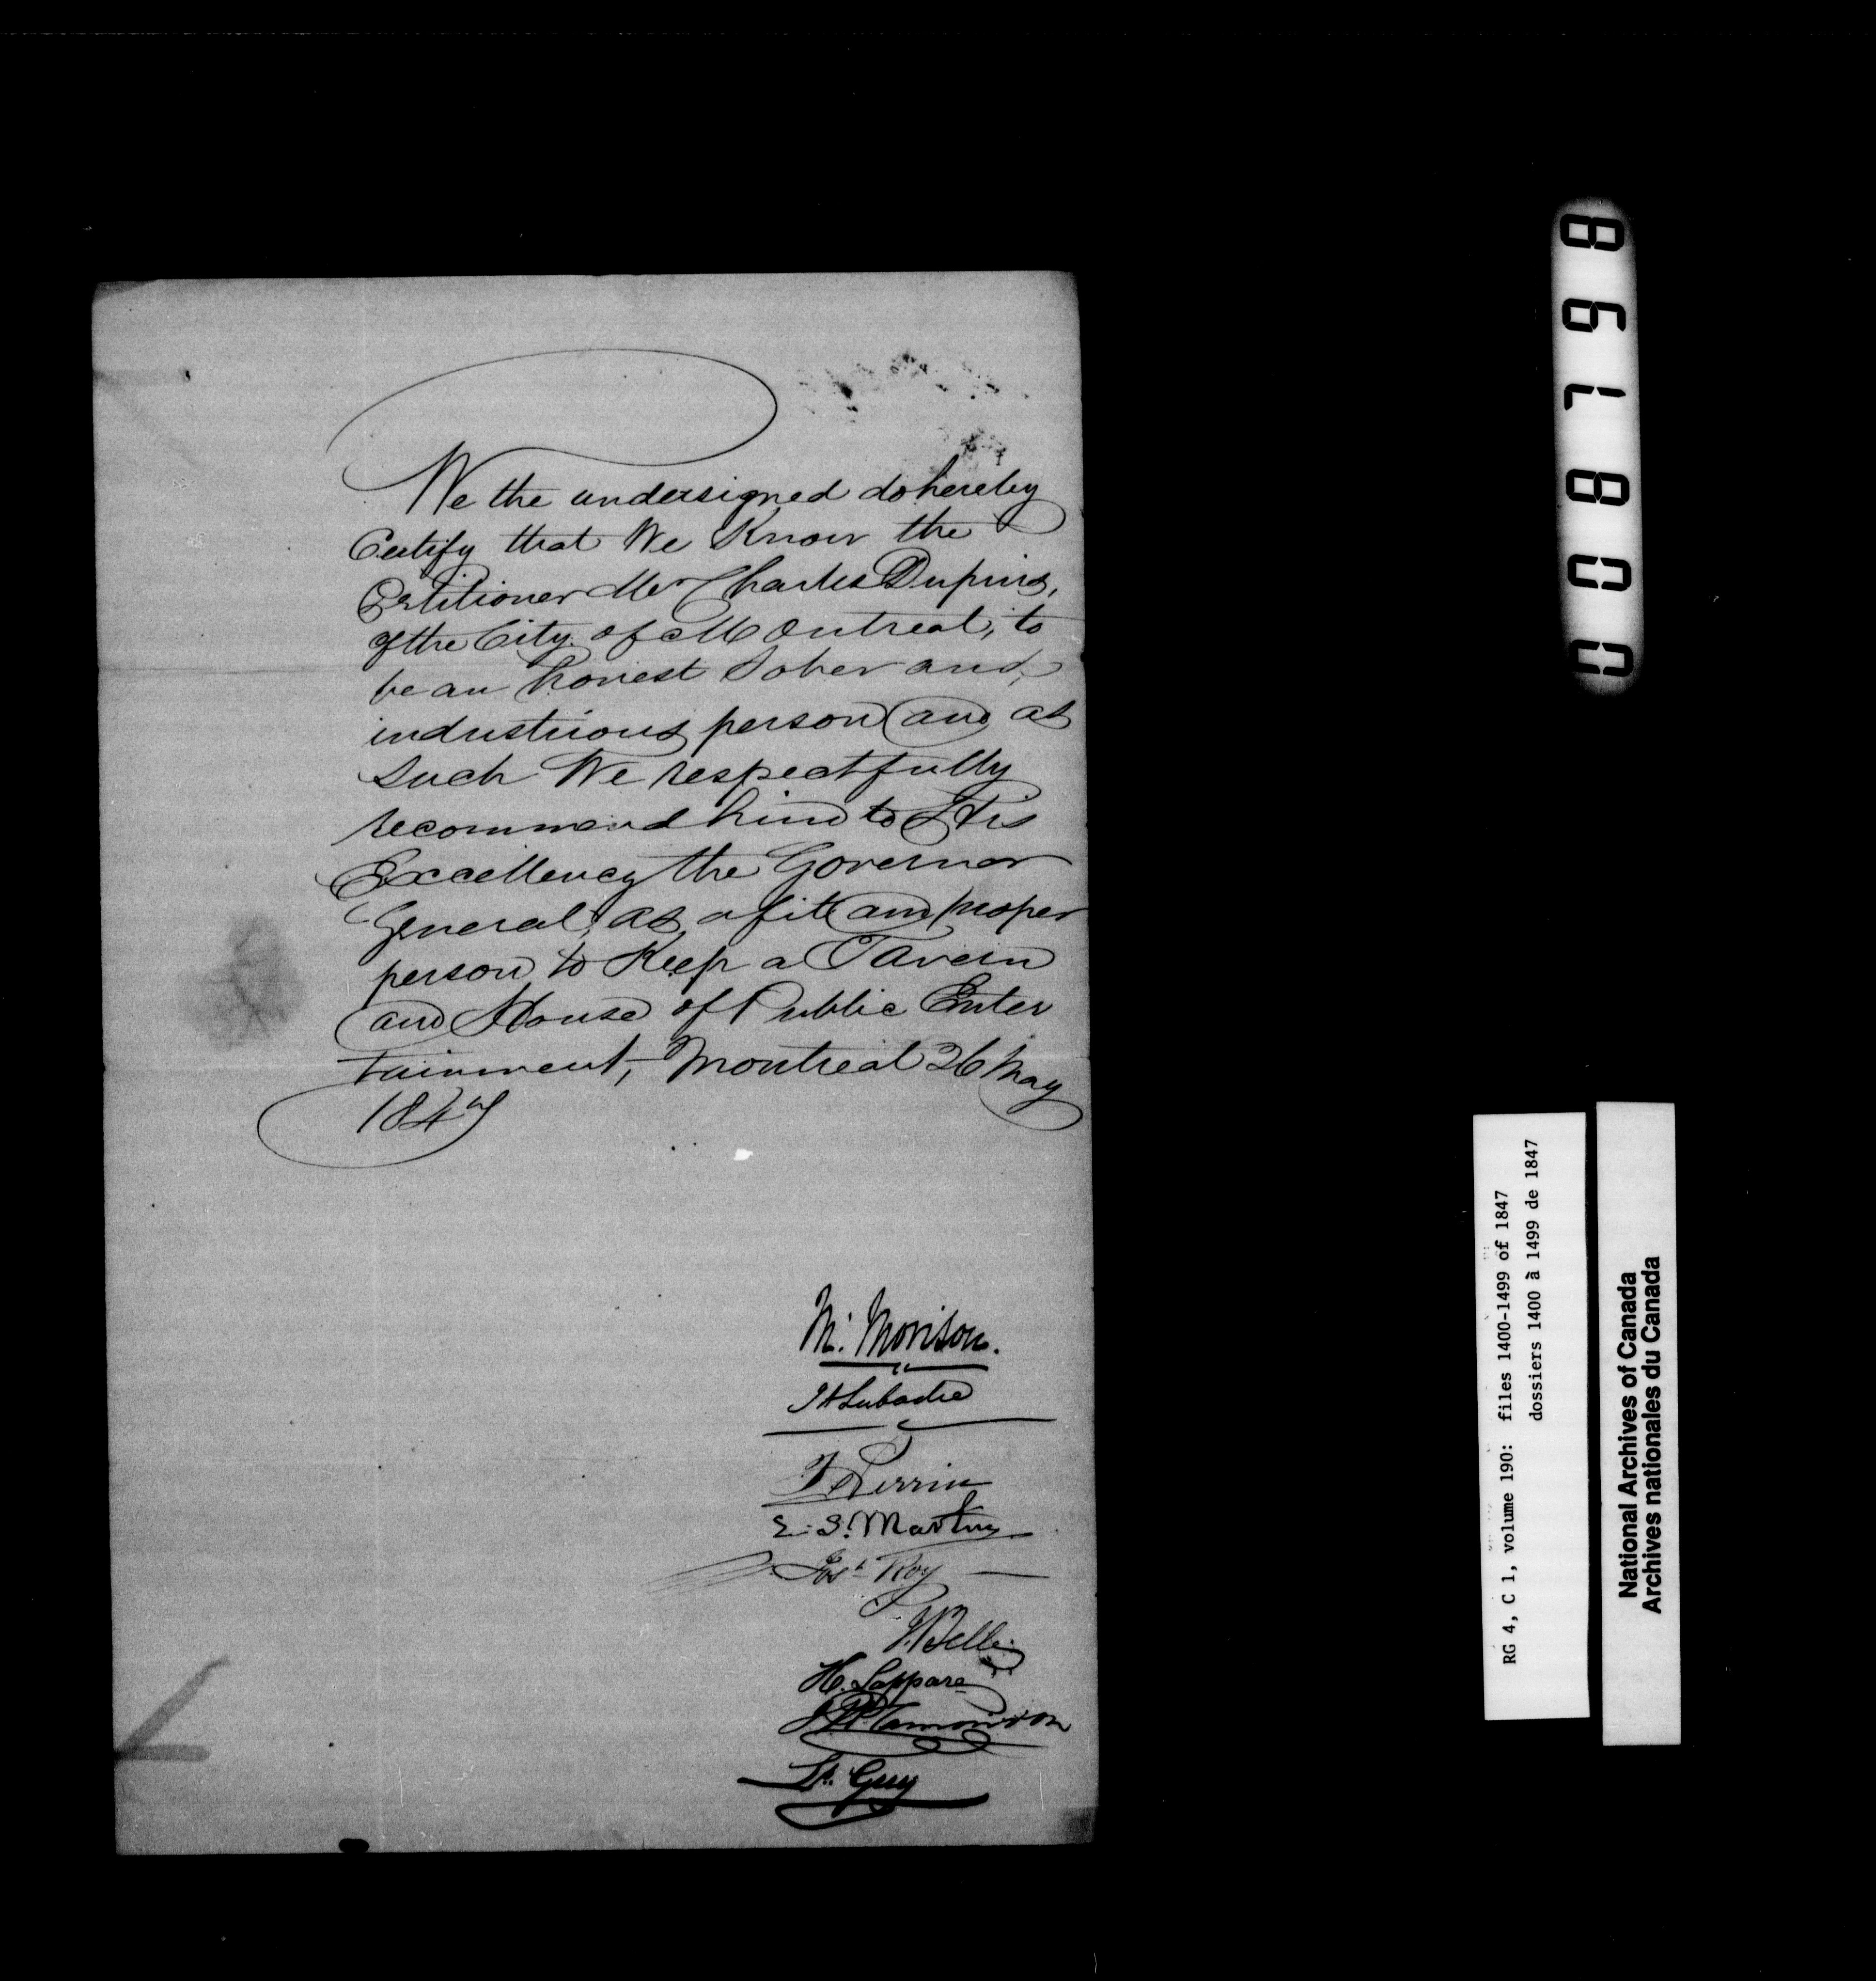 We the undersigned do hereby
Certify that We Know the
Petitioner Mr Charles Dupuis,
of the City of Montreal, to
be an honest Sober and,
industrious person and as
Such We respectfully
recommend him to His
Excellency the Governor
General, as a fit and proper
person to Keep a Tavern
and House of Public Enter
tainment,- Montreal 26 May
1847
M. Morison.
J A Labadie
J Perrin
E. S. Martin
Jos h Roy
J. Belle
H. Lappare
Ls. Guy
008198
RG 4, C 1, volume 190: files 1400-1499 of 1847
dossiers 1400 à 1499 de 1847
National Archives of Canada
Archives nationales du Canada